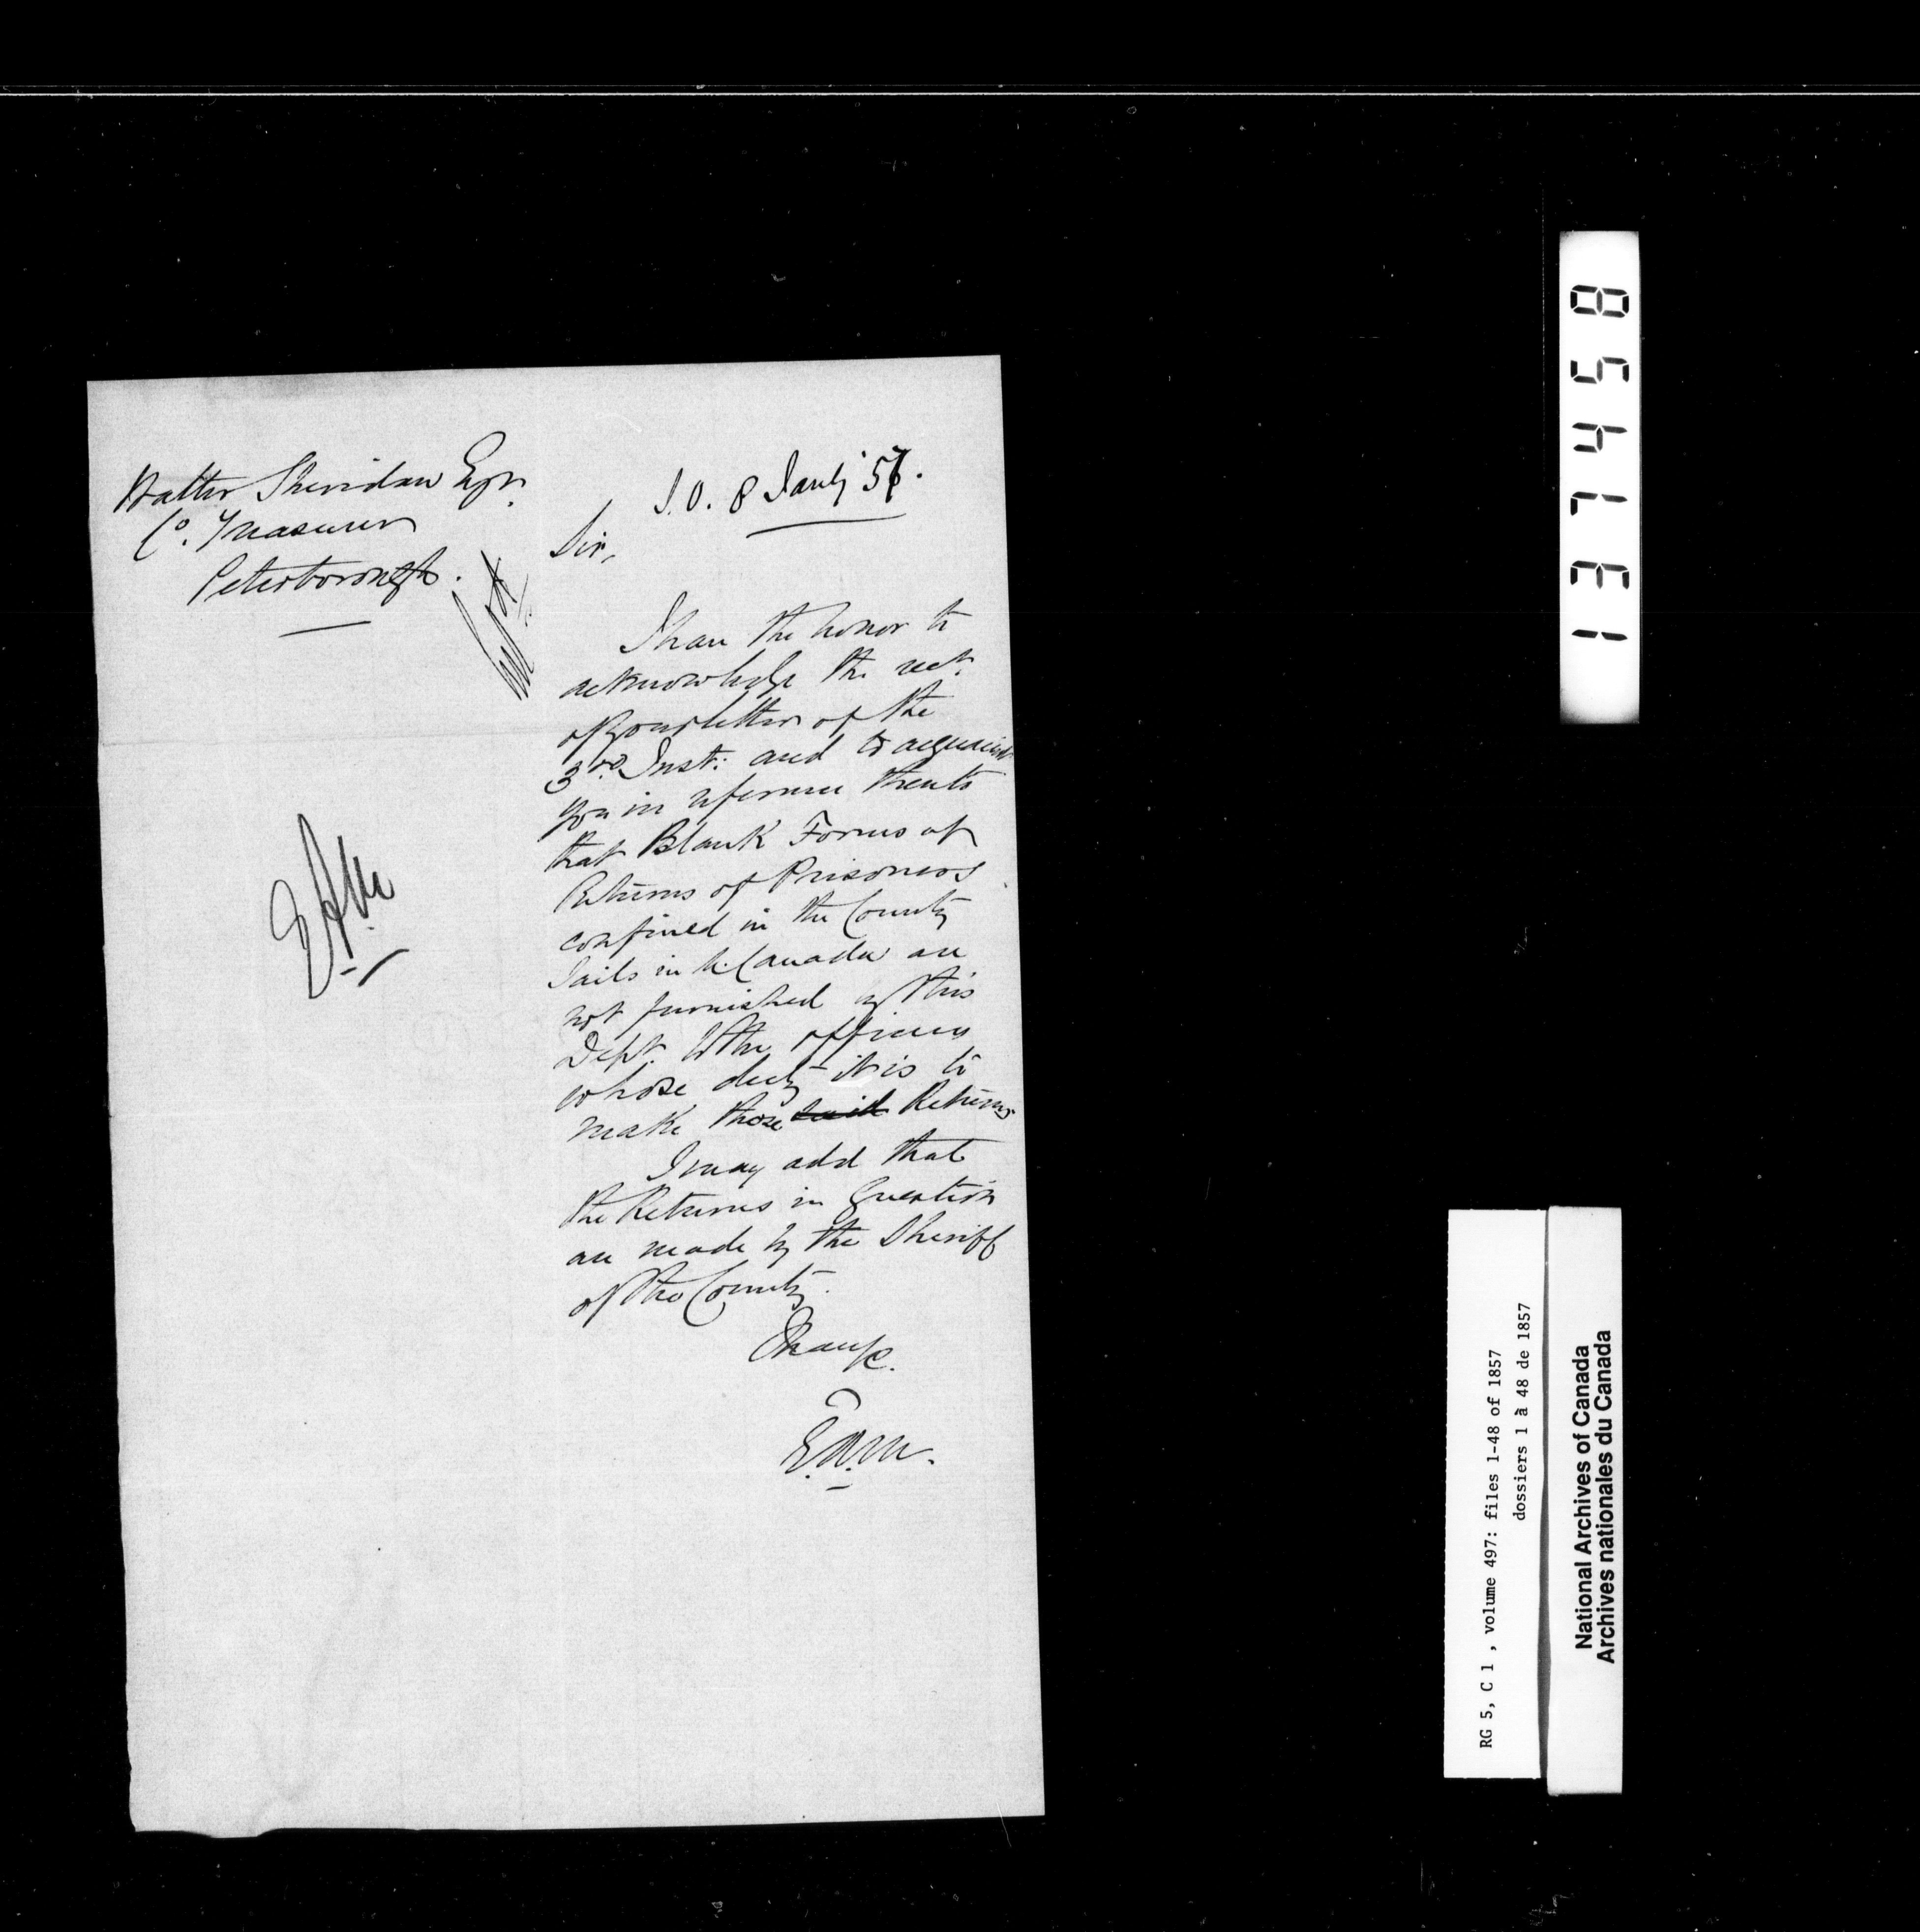 Walter Sheridan Esqr.
Co. Treasurer
Peterborough.
S.O. 8 Jany '57.
Sir,
I have the honor to
acknowledge the rect.
of your letter of the
3rd Inst: and to acquaint
you in reference thereto
that Blank Forms of
Returns of Prisoners
confined in the County
Jails in U. Canada are
not furnished by this
Dept. to the officers
whose duty it is to
make those said Returns
I may add that
the Returns in Question
are made by the Sheriff
of the County.
E.A.M.
137458
RG 5, C 1 , volume 497: files 1-48 of 1857
dossiers 1 à 48 de 1857
National Archives of Canada
Archives nationales du Canada